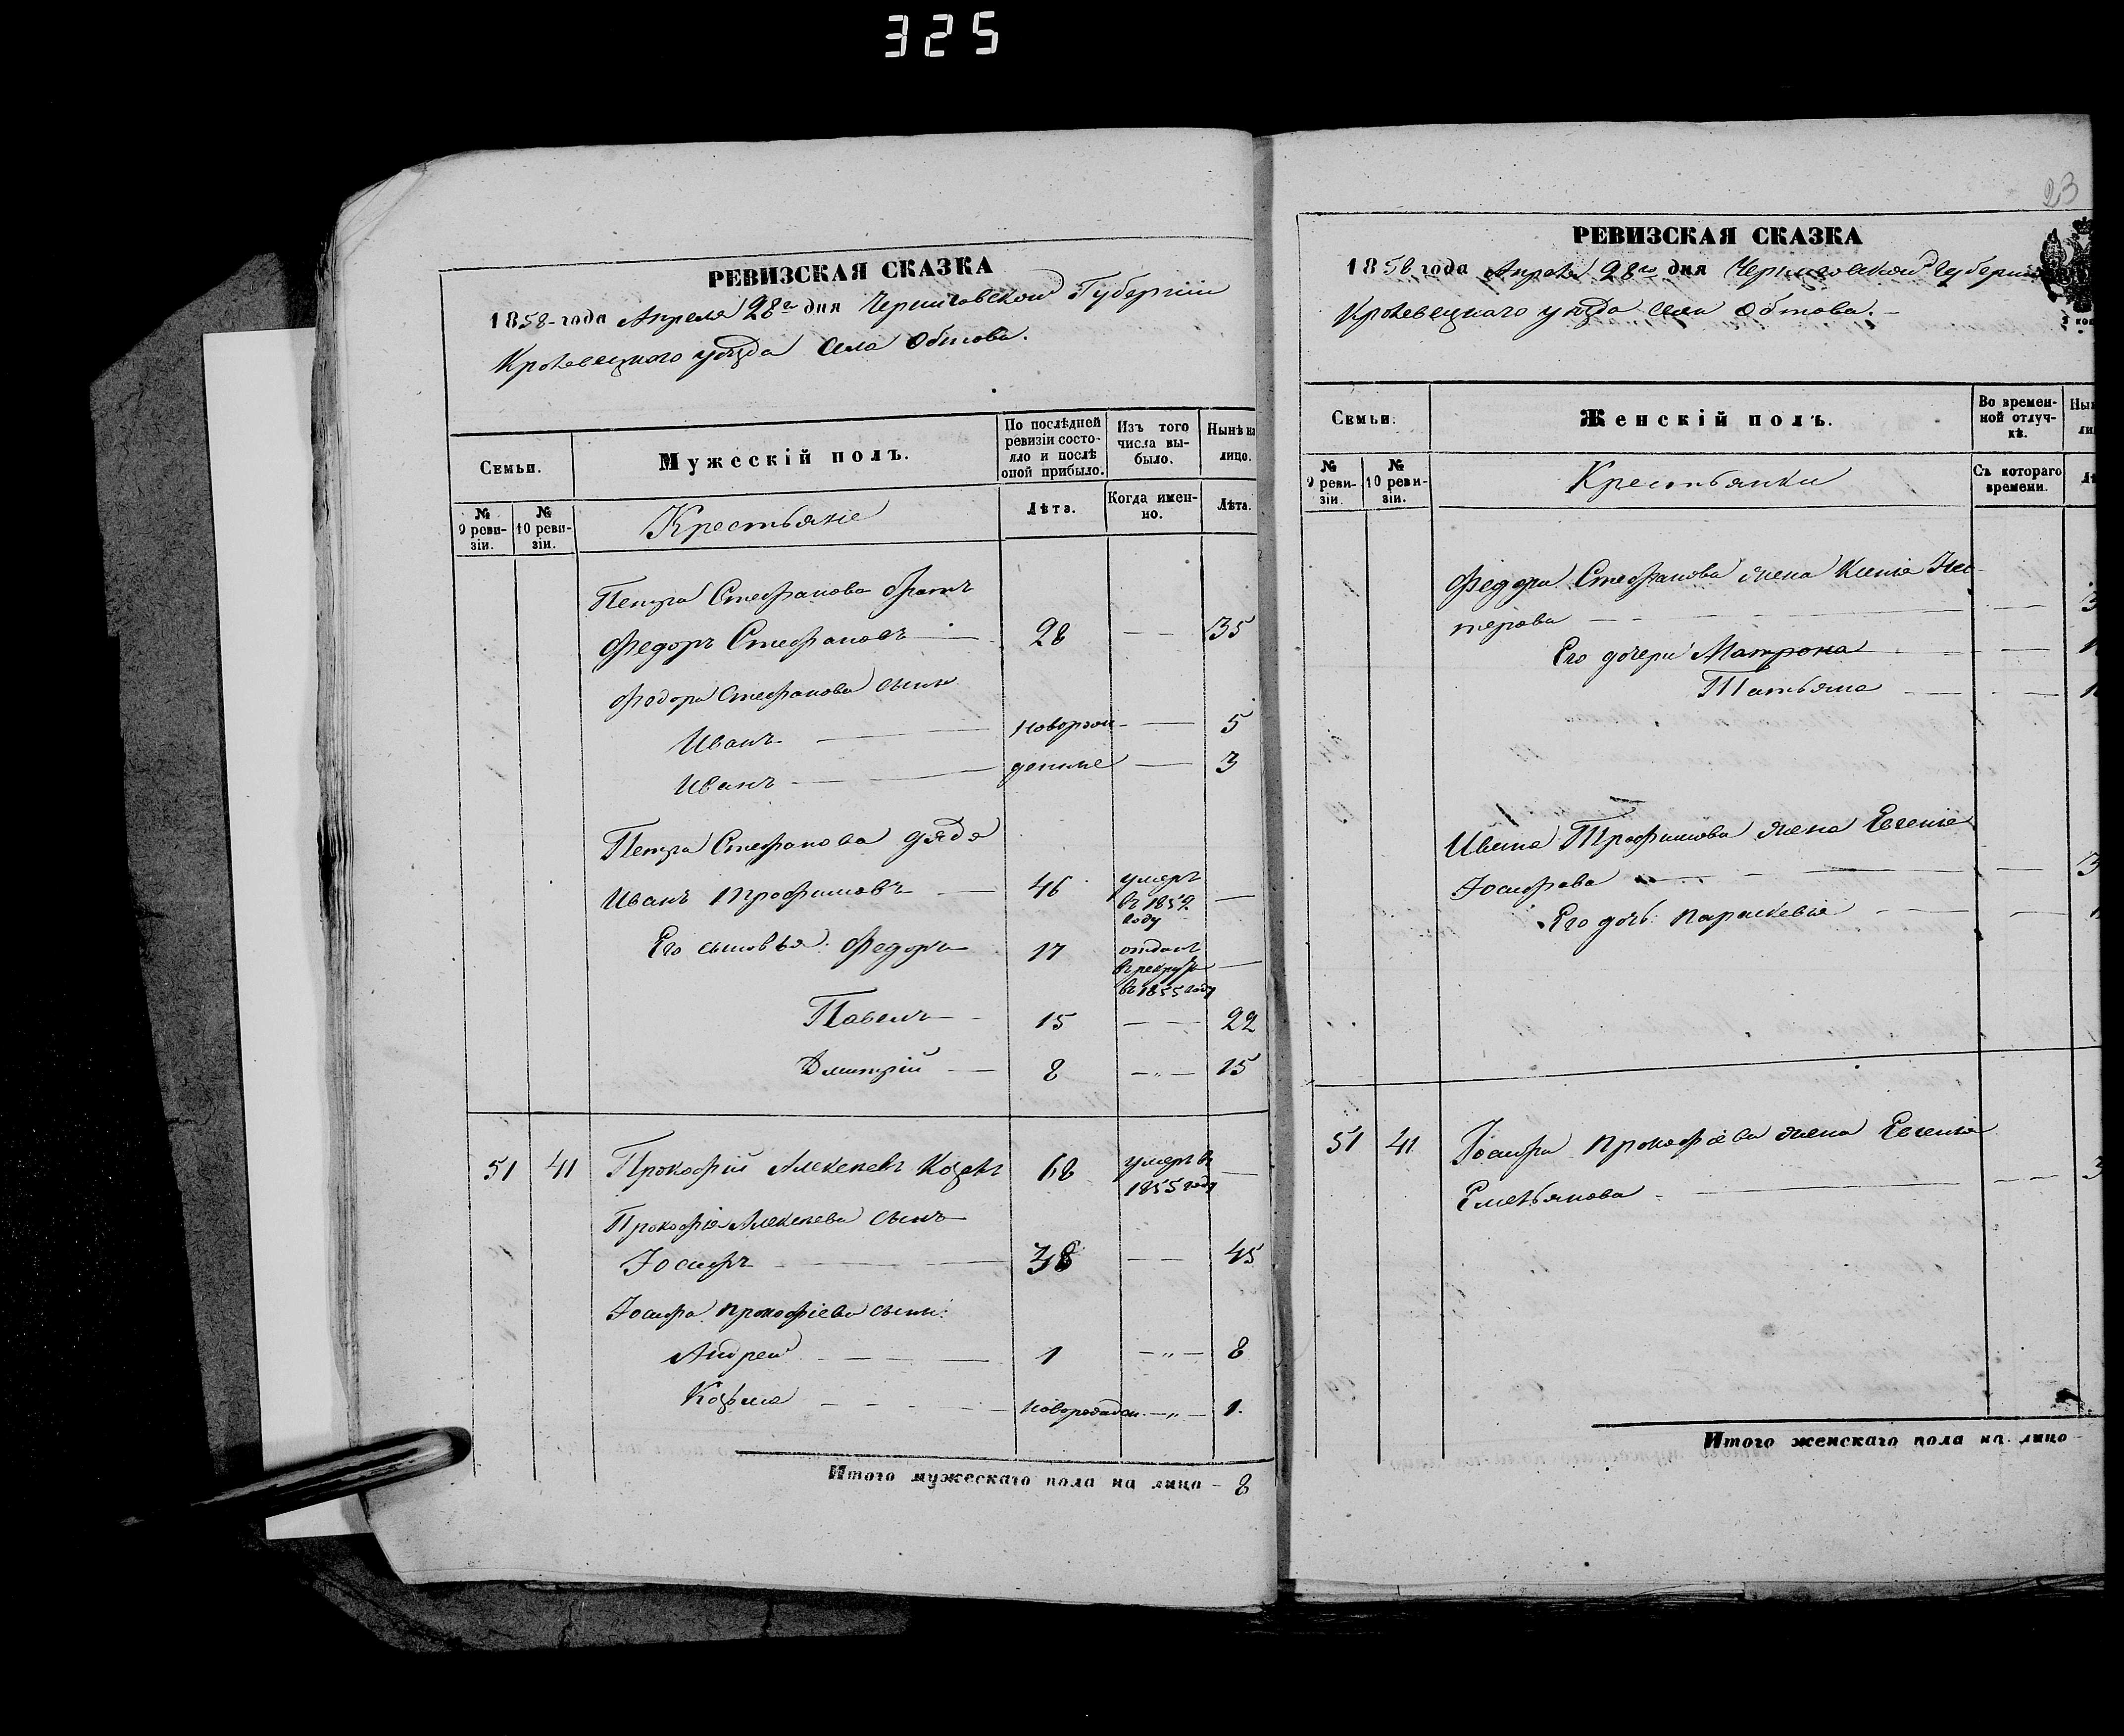 325
РЕВИЗСКАЯ СКАЗКА
1858 года Апреля 28го дня Черниговской Губерніи
Кролевецкого уѣзда Села Обтова.
Семьи.
Мужескій полъ.
По послѣдней ревизіи состояло и послѣ оной прибыло.
Изъ того числа выбыло.
Нынѣ на лицо.
№ 9 ревизіи.
№ 10 ревизіи.
Крестьяне
Лѣта.
Когда именно.
Лѣта.
Петра Стефанова братъ
Федоръ Стефановъ 28 — — 35
Федора Стефанова сыны
Иванъ — новорож- — 5
Иванъ — денные — 3
Петра Стефанова дядя
Иванъ Трофимовъ — 46 умеръ въ 1852 году —
Его сыновья: Федоръ 17 отданъ въ рекруты въ 1855 году —
Павелъ 15 — — 22
Дмитрій — 8 — „ — 15
51 41 Прокофій Алексеевъ Козакъ 68 умеръ въ 1855 году —
Прокофія Алексеева сынъ
Іосифъ 38 — — 45
Іосифа Прокофіева сыны:
Андрей — — 1 — „ — 8
Козьма — — новорожден. — „ — 1.
Итого мужескаго пола на лицо - 8
23
РЕВИЗСКАЯ СКАЗКА
1858 года Апреля 28го дня Черниговской Губерніи
Кролевецкаго уѣзда села Обтова. —
Семьи.
Женскій полъ.
Во временной отлучкѣ.
№ 9 ревизіи.
№ 10 ревизіи.
Крестьянки
Съ котораго времени.
Федора Стефанова жена Ксенія Нес-
терова — —
Его дочери Матрона
Татьяна
Ивана Трофимова жена Евгенія
Іосифова —
Его дочь: Параскевія
51 41 Іосифа Прокофіева жена Евгенія
Емельянова —
Итого женскаго пола на лицо